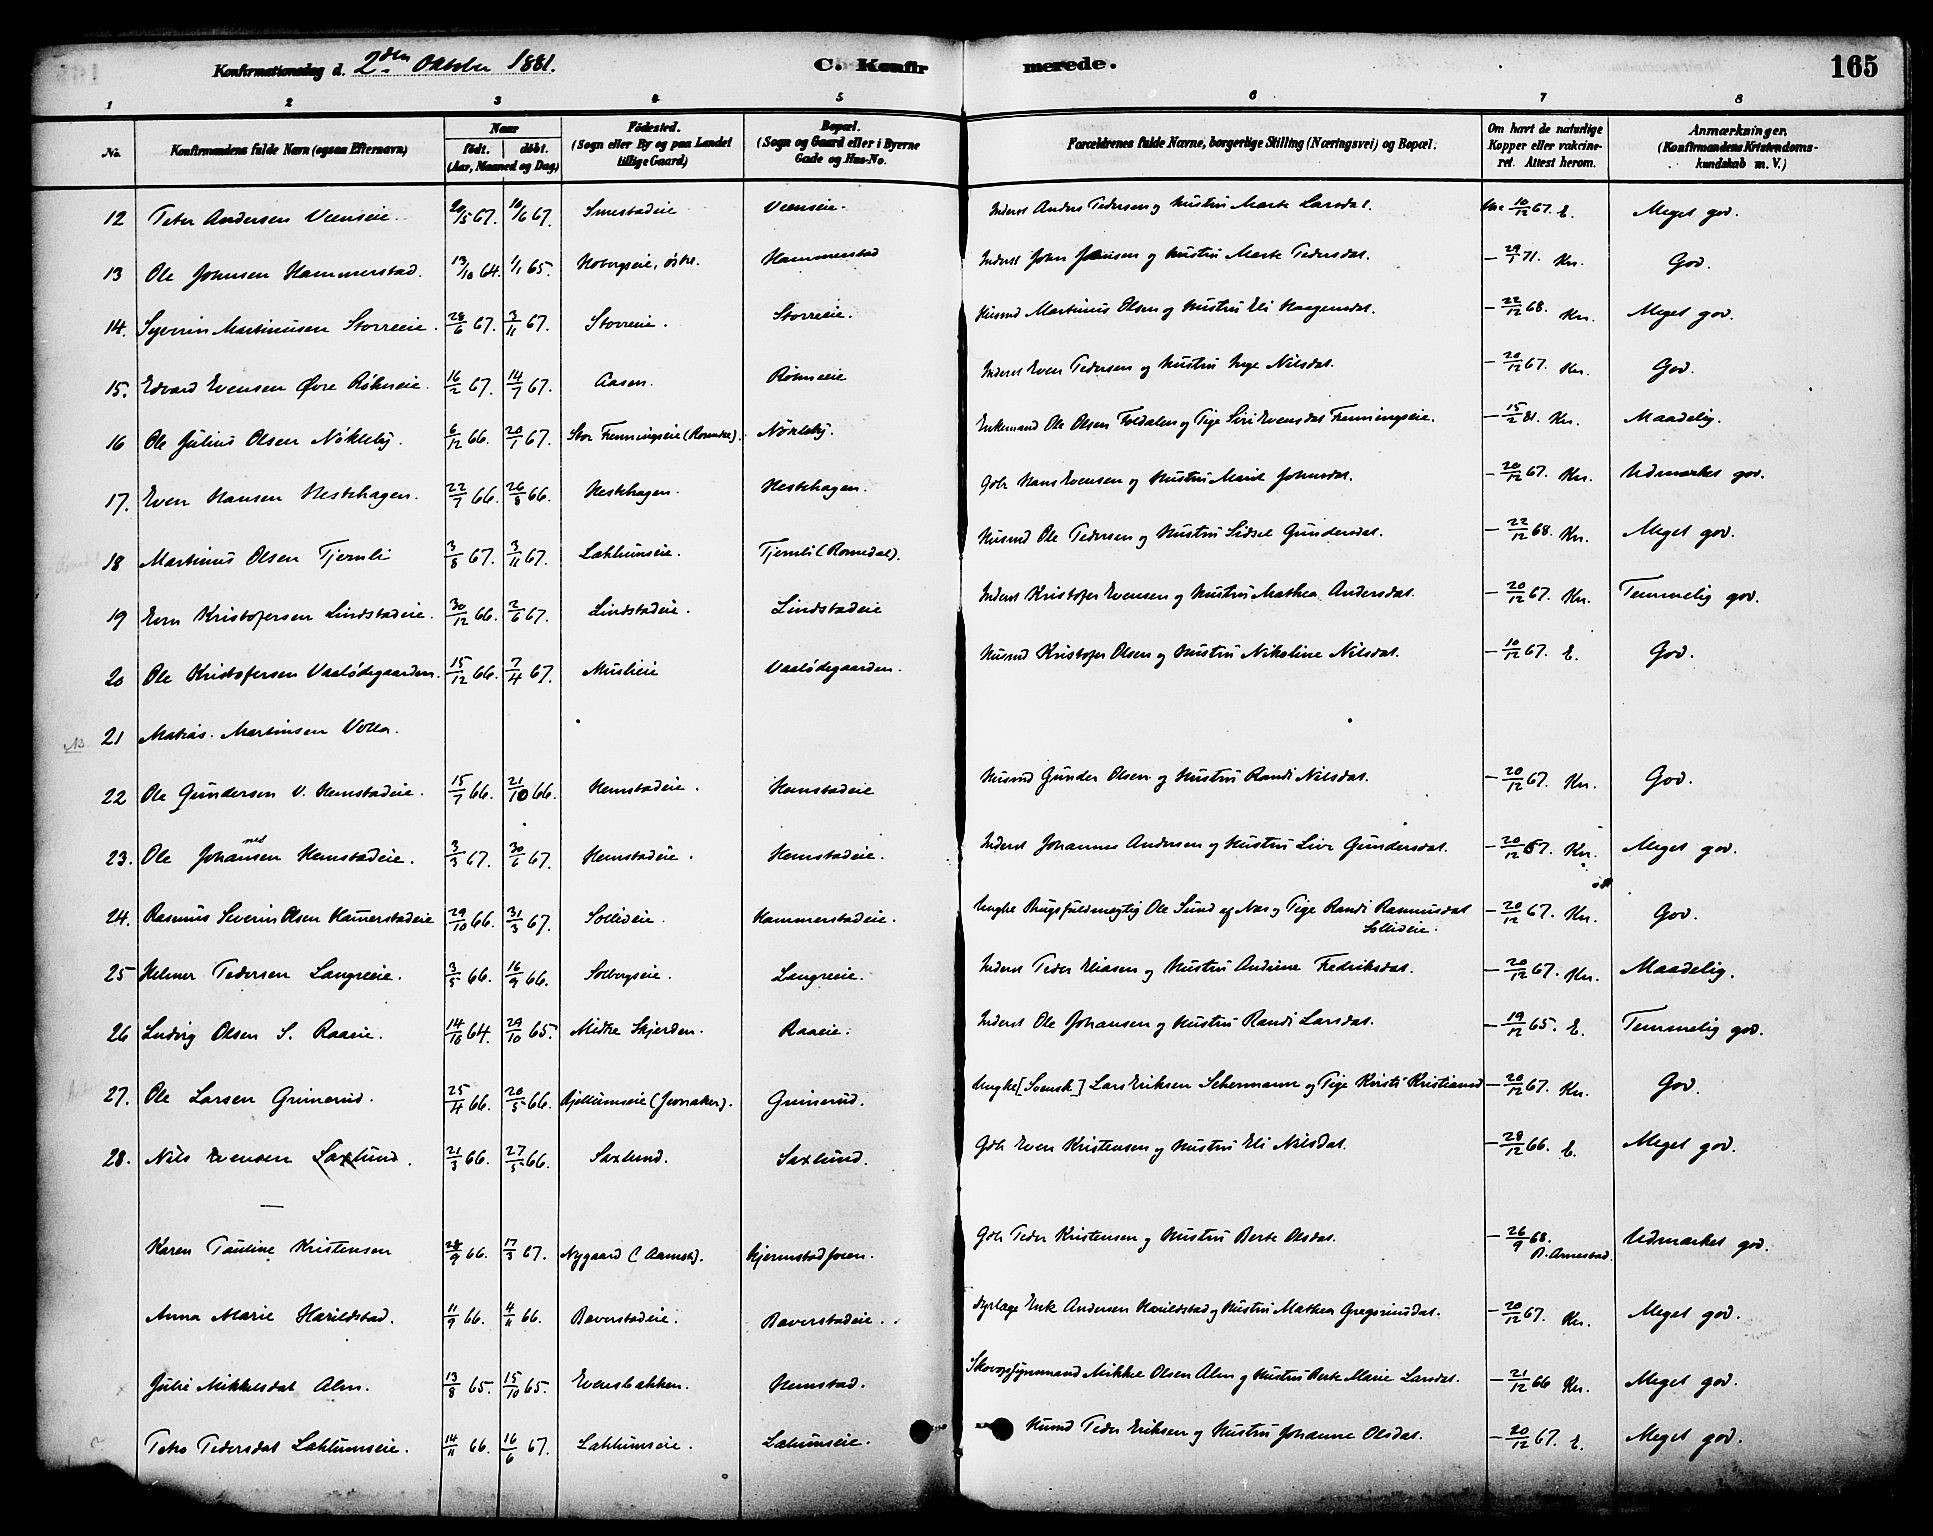 Konfirmationsdag d. 2den Oktober 1881. C. Konfirmerede. 165
1 2 3 4 5 6 7 8
No. Konfirmandens fulde Navn (ogsaa Efternavn) Naar født. døbt. (Aar, Maaned og Dag) Fødested. (Sogn eller By og paa Landet tillige Gaard) Bopæl. (Sogn og Gaard eller i Byerne Gade og Hus-No. Forældrenes fulde Navne, borgerlige Stilling (Næringsvei) og Bopæl. Om havt de naturlige Kopper eller vakcineret. Attest herom. Anmærkninger. (Konfirmandens Kristendomskundskab m. V.)
12 Peter Andersen Veenseie. 20/5 67. 10/6 67. Smestadeie Veenseie. Inderst Anders Pedersen og Hustru Marte Larsdat. Vac 10/12 67. E. Meget god.
13 Ole Johnsen Hammerstad. 13/10 64. 1/1 65. Hobergseie, østre. Hammerstad Inderst John Jensen og Hustru Marte Pedersdat. – 29/1 71. Kn. God.
14. Syverin Martinusen Storreeie. 28/6 67. 3/11 67. Storreeie. Storreeie. Husmd Martinus Olsen og Hustru Eli Haagensdat. – 22/12 68. Kn. Meget god.
15. Edvard Evensen Øvre Røhneeie. 16/2 67. 14/7 67. Aasen. Røhneeie Inderst Even Pedersen og Hustru Inge Nilsdat. – 20/12 67. Kn. God.
16 Ole Julius Olsen Nøkleby. 6/12 66. 20/1 67. Stor Fenningseie (Romedal). Nøkleby. Enkemand Ole Olsen Foldalen og Pige Siri Evensdat Fenningseie. – 15/2 81. Kn. Maadelig.
17. Even Hansen Hestehagen. 22/7 66. 26/8 66. Hestehagen. Hestehagen. Gbr Hans Evensen og Hustru Marie Johnsdat. – 20/12 67. Kn. Udmærket god.
18 Martinus Olsen Tjernli 3/8 67. 3/11 67. Laklumseie. Tjernli (Romedal). Husmd Ole Pedersen og Hustru Sidsel Gundersdat. – 22/12 68. Kn. Meget god.
19 Even Kristofersen Lindstadeie. 30/12 66. 2/6 67. Lindstadeie. Lindstadeie Inderst Kristofer Evensen og Hustru Mathea Andersdat. – 20/12 67. Kn. Temmelig god.
20 Ole Kristofersen Vaalødegaarden. 15/12 66. 7/4 67. Muslieie Vaalødegaarden. Husmd Kristofer Olsen og Hustru Nikoline Nilsdat. – 10/12 67. E. God.
NB. 21 Matias Martinsen Volla.
22 Ole Gundersen V. Hemstadeie. 15/7 66. 21/10 66. Hemstadeie. Hemstadeie Husmd Gunder Olsen og Hustru Randi Nilsdat. – 20/12 67. Kn. God.
23. Ole Johansen Hemstadeie. 3/3 67. 30/6 67. Hemstadeie. Hemstadeie. Inderst Johannes Andersen og Hustru Live Gundersdat. – 20/12 67. Kn. Meget god.
24. Rasmus Severin Olsen Hammerstadeie 29/10 66. 31/3 67. Sollideie. Hammerstadeie. Ungke Brugsfuldmægtig Ole Sund af Næs og Pige Randi Rasmusdat Sollideie. – 20/12 67. Kn. God.
25 Helmer Pedersen Langreeie. 3/5 66. 16/9 66. Solbergseie. Langreeie. Inderst Peder Eliasen og Hustru Andrine Fredriksdat. – 20/12 67. Kn. Maadelig.
26 Ludvig Olsen S. Raaeie. 14/10 64. 29/10 65. Midtre Skjerden. Raaeie. Inderst Ole Johansen og Hustru Randi Larsdat. – 19/12 65. E. Temmelig god.
27. Ole Larsen Grimerud. 25/4 66. 20/5 66. Kjellumseie (Jevnaker). Grimerud. Ungke [Svensk] Lars Eriksen Schermann og Pige Kristi Kristiansd – 20/12 67. Kn. God.
28. Nils Evensen Saxlund. 21/3 66. 27/5 66. Saxlund. Saxlund. Gbr Even Kristensen og Hustru Eli Nilsdat. – 28/12 66. E. Meget god.
Karen Pauline Kristensen 28/9 66. 17/3 67. Nygaard (Aamot). Hjermstadforen. Gbr Peder Kristensen og Hustru Berte Olsdat. – 26/9 68. D. Arnestad. Udmærket god.
Anna Marie Harildstad. 11/9 66. 4/11 66. Baverstadeie. Baverstadeie. Dyrlæge Erik Andersen Harildstad og Hustru Mathea Gregoriusdat. – 20/12 67. Kn. Meget god.
Julie Mikkelsdat Alm. 13/8 65. 15/10 65. Evensbakken. Hemstad. Skovopsynsmand Mikkel Olsen Alm og Hustru Berte Marie Larsdat. – 21/12 66 Kn. Meget god.
Petra Pedersdat Laklumseie. 14/11 66. 16/6 67. Laklumseie. Laklumseie. Husmd Peder Eriksen og Hustru Johanne Olsdat. – 20/12 67. E. Meget god.